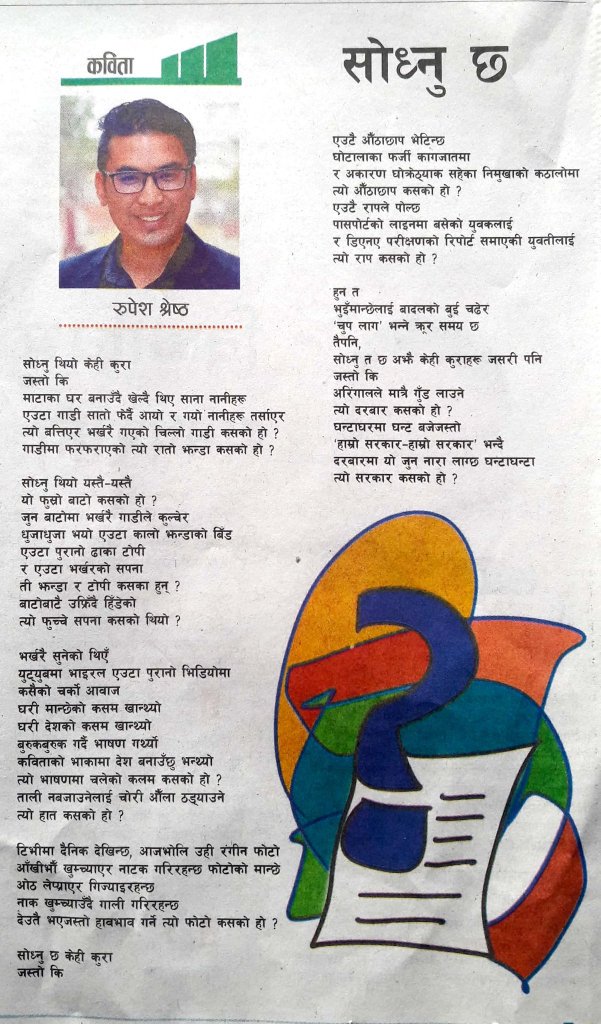 कविता
सोध्नु छ
रुपेश श्रेष्ठ
सोध्नु थियो केही कुरा
जस्तो कि
माटाका घर बनाउँदै खेल्दै थिए साना नानीहरू
एउटा गाडी सातो फेर्दै आयो र गयो नानीहरू तर्साएर
त्यो बत्तिएर भर्खरै गएको चिल्लो गाडी कसको हो ?
गाडीमा फरफराएको त्यो रातो झन्डा कसको हो ?
सोध्नु थियो यस्तै-यस्तै
यो फुस्रो बाटो कसको हो ?
जुन बाटोमा भर्खरै गाडीले कुल्चेर
धुजाधुजा भयो एउटा कालो झन्डाको बिँड
एउटा पुरानो ढाका टोपी
र एउटा भर्खरको सपना
ती झन्डा र टोपी कसका हुन् ?
बाटोबाटै उफ्रिँदै हिँडेको
त्यो फुच्चे सपना कसको थियो ?
भर्खरै सुनेको थिएँ
युट्युबमा भाइरल एउटा पुरानो भिडियोमा
कसैको चर्को आवाज
घरी मान्छेको कसम खान्थ्यो
घरी देशको कसम खान्थ्यो
बुरुकबुरुक गर्दै भाषण गर्थ्यो
कविताको भाकामा देश बनाउँछु भन्थ्यो
त्यो भाषणमा चलेको कलम कसको हो ?
ताली नबजाउनेलाई चोरी औंला ठड्याउने
त्यो हात कसको हो ?
टिभीमा दैनिक देखिन्छ, आजभोलि उही रंगीन फोटो
आँखीभौं खुम्च्याएर नाटक गरिरहन्छ फोटोको मान्छे
ओठ लेप्राएर गिज्याइरहन्छ
नाक खुम्च्याउँदै गाली गरिरहन्छ
देउतै भएजस्तो हाबभाव गर्ने त्यो फोटो कसको हो ?
सोध्नु छ केही कुरा
जस्तो कि
एउटै औंठाछाप भेटिन्छ
घोटालाका फर्जी कागजातमा
र अकारण घोक्रेठ्याक सहेका निमुखाको कठालोमा
त्यो औंठाछाप कसको हो ?
एउटै रापले पोल्छ
पासपोर्टको लाइनमा बसेको युवकलाई
र डिएनए परीक्षणको रिपोर्ट समाएकी युवतीलाई
त्यो राप कसको हो ?
हुन त
भुइँमान्छेलाई बादलको बुई चढेर
'चुप लाग' भन्ने क्रूर समय छ
तैपनि,
सोध्नु त छ अझै केही कुराहरू जसरी पनि
जस्तो कि
अरिंगालले मात्रै गुँड लाउने
त्यो दरबार कसको हो ?
घन्टाघरमा घन्ट बजेजस्तो
'हाम्रो सरकार-हाम्रो सरकार' भन्दै
दरबारमा यो जुन नारा लाग्छ घन्टाघन्टा
त्यो सरकार कसको हो ?